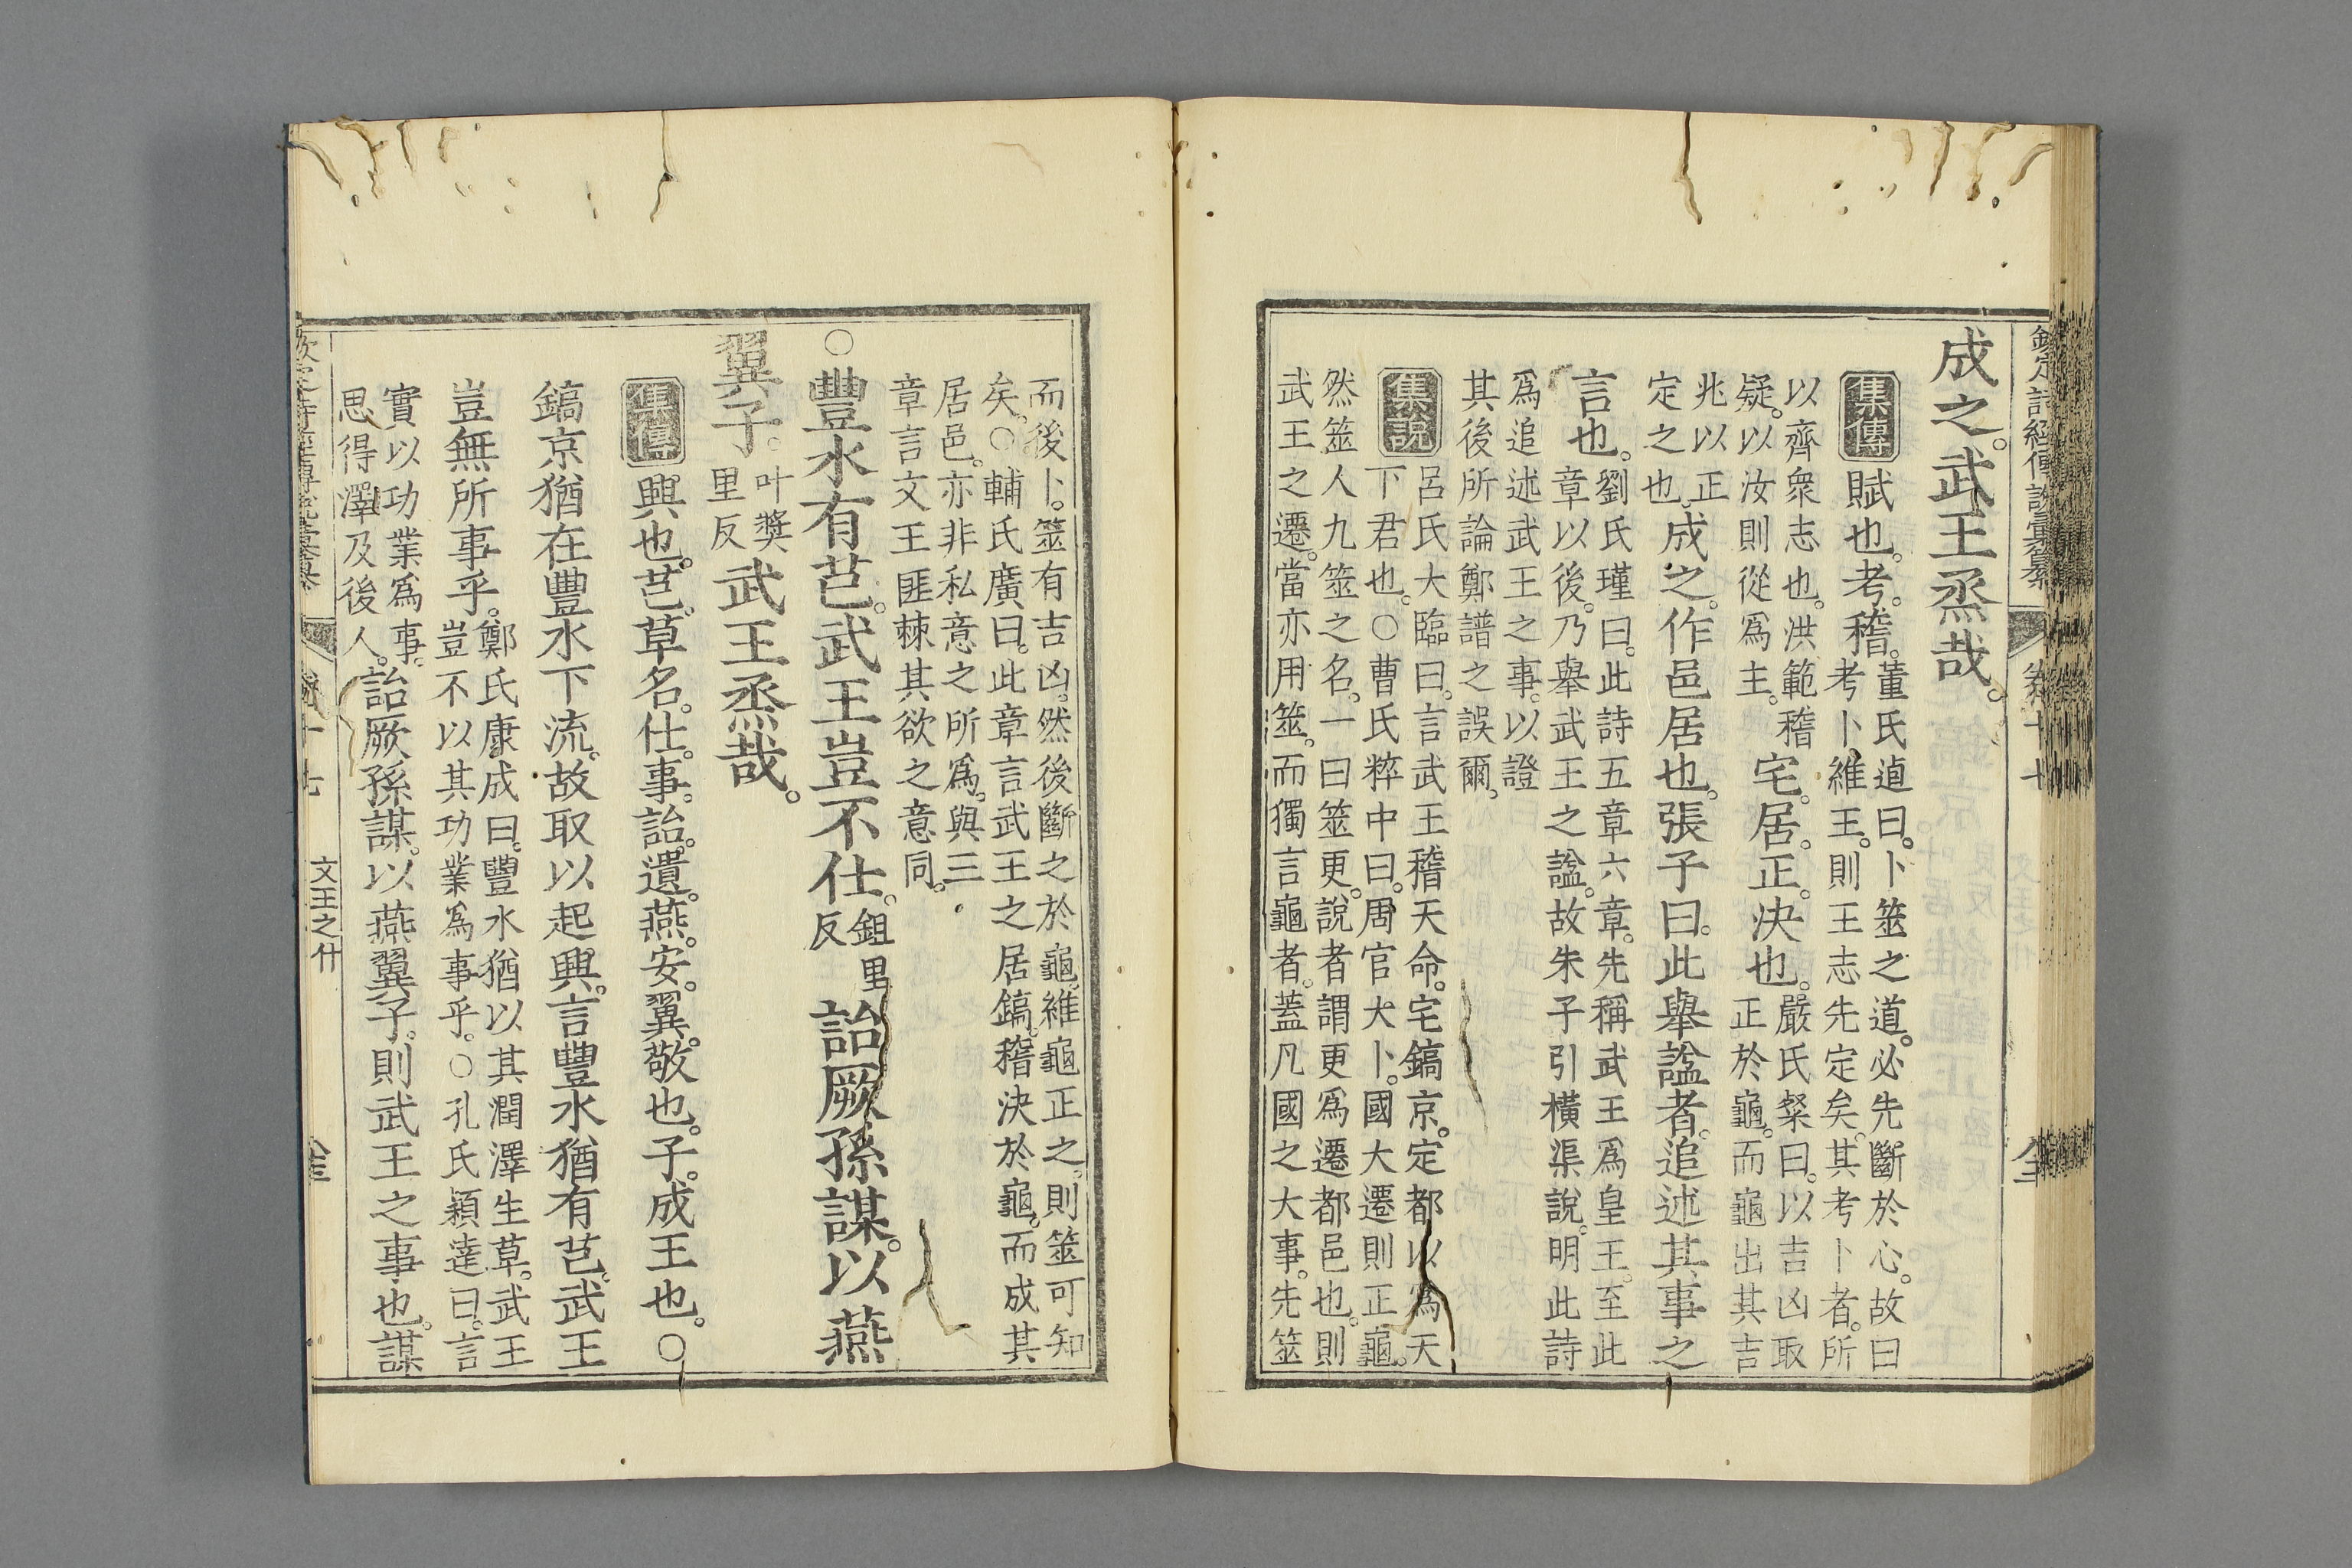 成之。武王烝哉。
集傳 賦也。考。稽。董氏逌曰。卜筮之道。必先斷於心。故曰
考卜維王。則王志先定矣。其考卜者。所
以齊衆志也。洪範稽
疑。以汝則從爲主。宅。居。正。決也。嚴氏粲曰。以吉凶取
正於龜。而龜出其吉
兆以正
定之也。成之。作邑居也。張子曰。此舉諡者。追述其事之
言也。劉氏瑾曰。此詩五章六章。先稱武王爲皇王。至此
章以後。乃舉武王之諡。故朱子引橫渠說。明此詩
爲追述武王之事。以證
其後所論鄭譜之誤爾。
集說 呂氏大臨曰。言武王稽天命。宅鎬京。定都以爲天
下君也。○曹氏粹中曰。周官大卜。國大遷則正龜。
然筮人九筮之名。一曰筮更。說者謂更爲遷都邑也。則
武王之遷。當亦用筮。而獨言龜者。蓋凡國之大事。先筮
而後卜。筮有吉凶。然後斷之於龜。維龜正之。則筮可知
矣。○輔氏廣曰。此章言武王之居鎬。稽決於龜。而成其
居邑。亦非私意之所爲。與三
章言文王匪棘其欲之意同。
○豐水有芑。武王豈不仕。鉏里
反詒厥孫謀。以燕
翼子。叶獎
里反武王烝哉。
集傳 興也。芑。草名。仕。事。詒。遺。燕。安。翼。敬也。子。成王也。○
鎬京猶在豐水下流。故取以起興。言豐水猶有芑。武王
豈無所事乎。鄭氏康成曰。豐水猶以其潤澤生草。武王
豈不以其功業爲事乎。○孔氏穎達曰。言
實以功業爲事。
思得澤及後人。詒厥孫謀。以燕翼子。則武王之事也。謀
文王之什